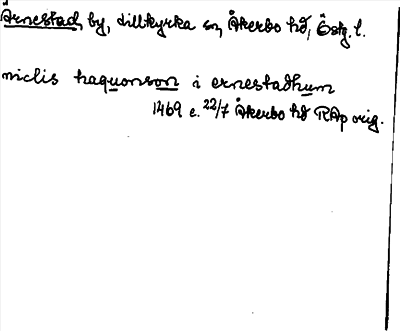 Årnestad, by, Lillkyrka sn, Åkerbo hd, Östg. l.
niclis haquonson i ernestadhum
1469 e. 22/7 Åkerbo hd RAp orig.